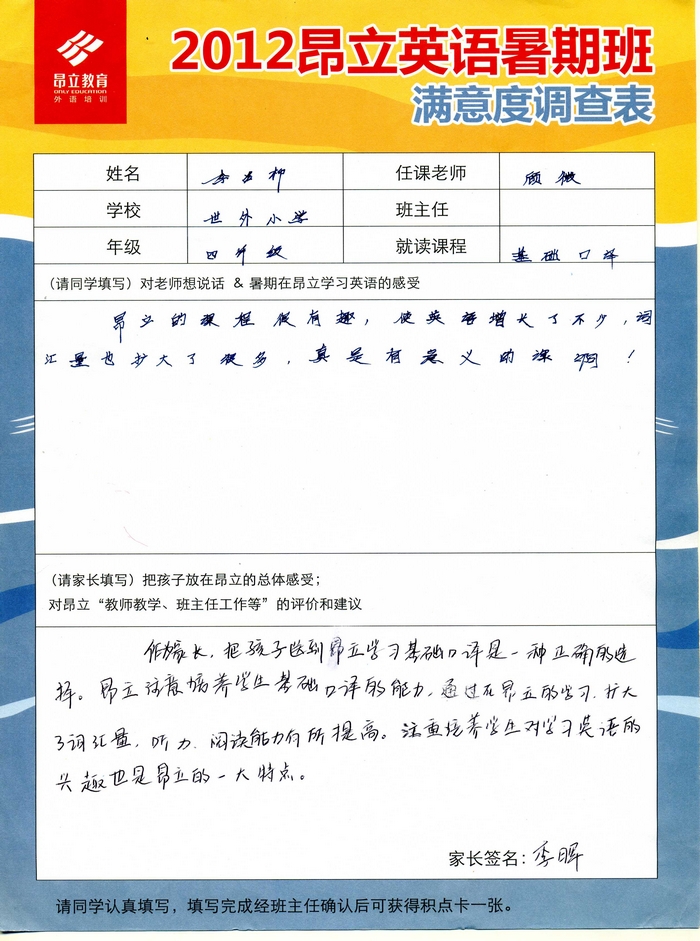 昂立教育
ONLY EDUCATION
外语培训
2012昂立英语暑期班
满意度调查表
姓名 李 柳 任课老师 顾微
学校 世外小学 班主任
年级 四升级 就读课程 基础口译
（请同学填写）对老师想说话 & 暑期在昂立学习英语的感受
昂立的课程很有趣，使英语增长了不少，词
汇量也扩大了很多，真是有意义的课啊！
（请家长填写）把孩子放在昂立的总体感受；
对昂立“教师教学、班主任工作等”的评价和建议
作为家长，把孩子送到昂立学习基础口译是一种正确的选
择。昂立注意培养学生基础口译的能力，通过在昂立的学习，扩大
了词汇量，听力、阅读能力有所提高。注重培养学生对学习英语的
兴趣也是昂立的一大特点。
家长签名：李晖
请同学认真填写，填写完成经班主任确认后可获得积点卡一张。